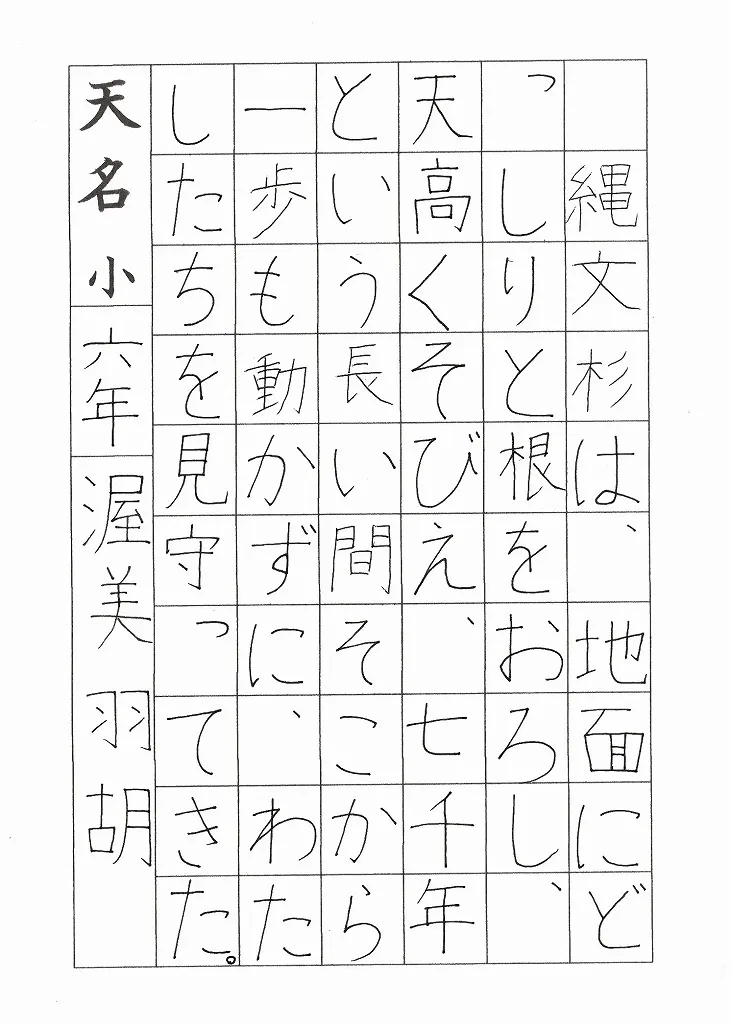 縄文杉は、地面にど
っしりと根をおろし、
天高くそびえ、七千年
という長い間そこから
一歩も動かずに、わた
したちを見守ってきた。
天名小 六年 渥美 羽胡